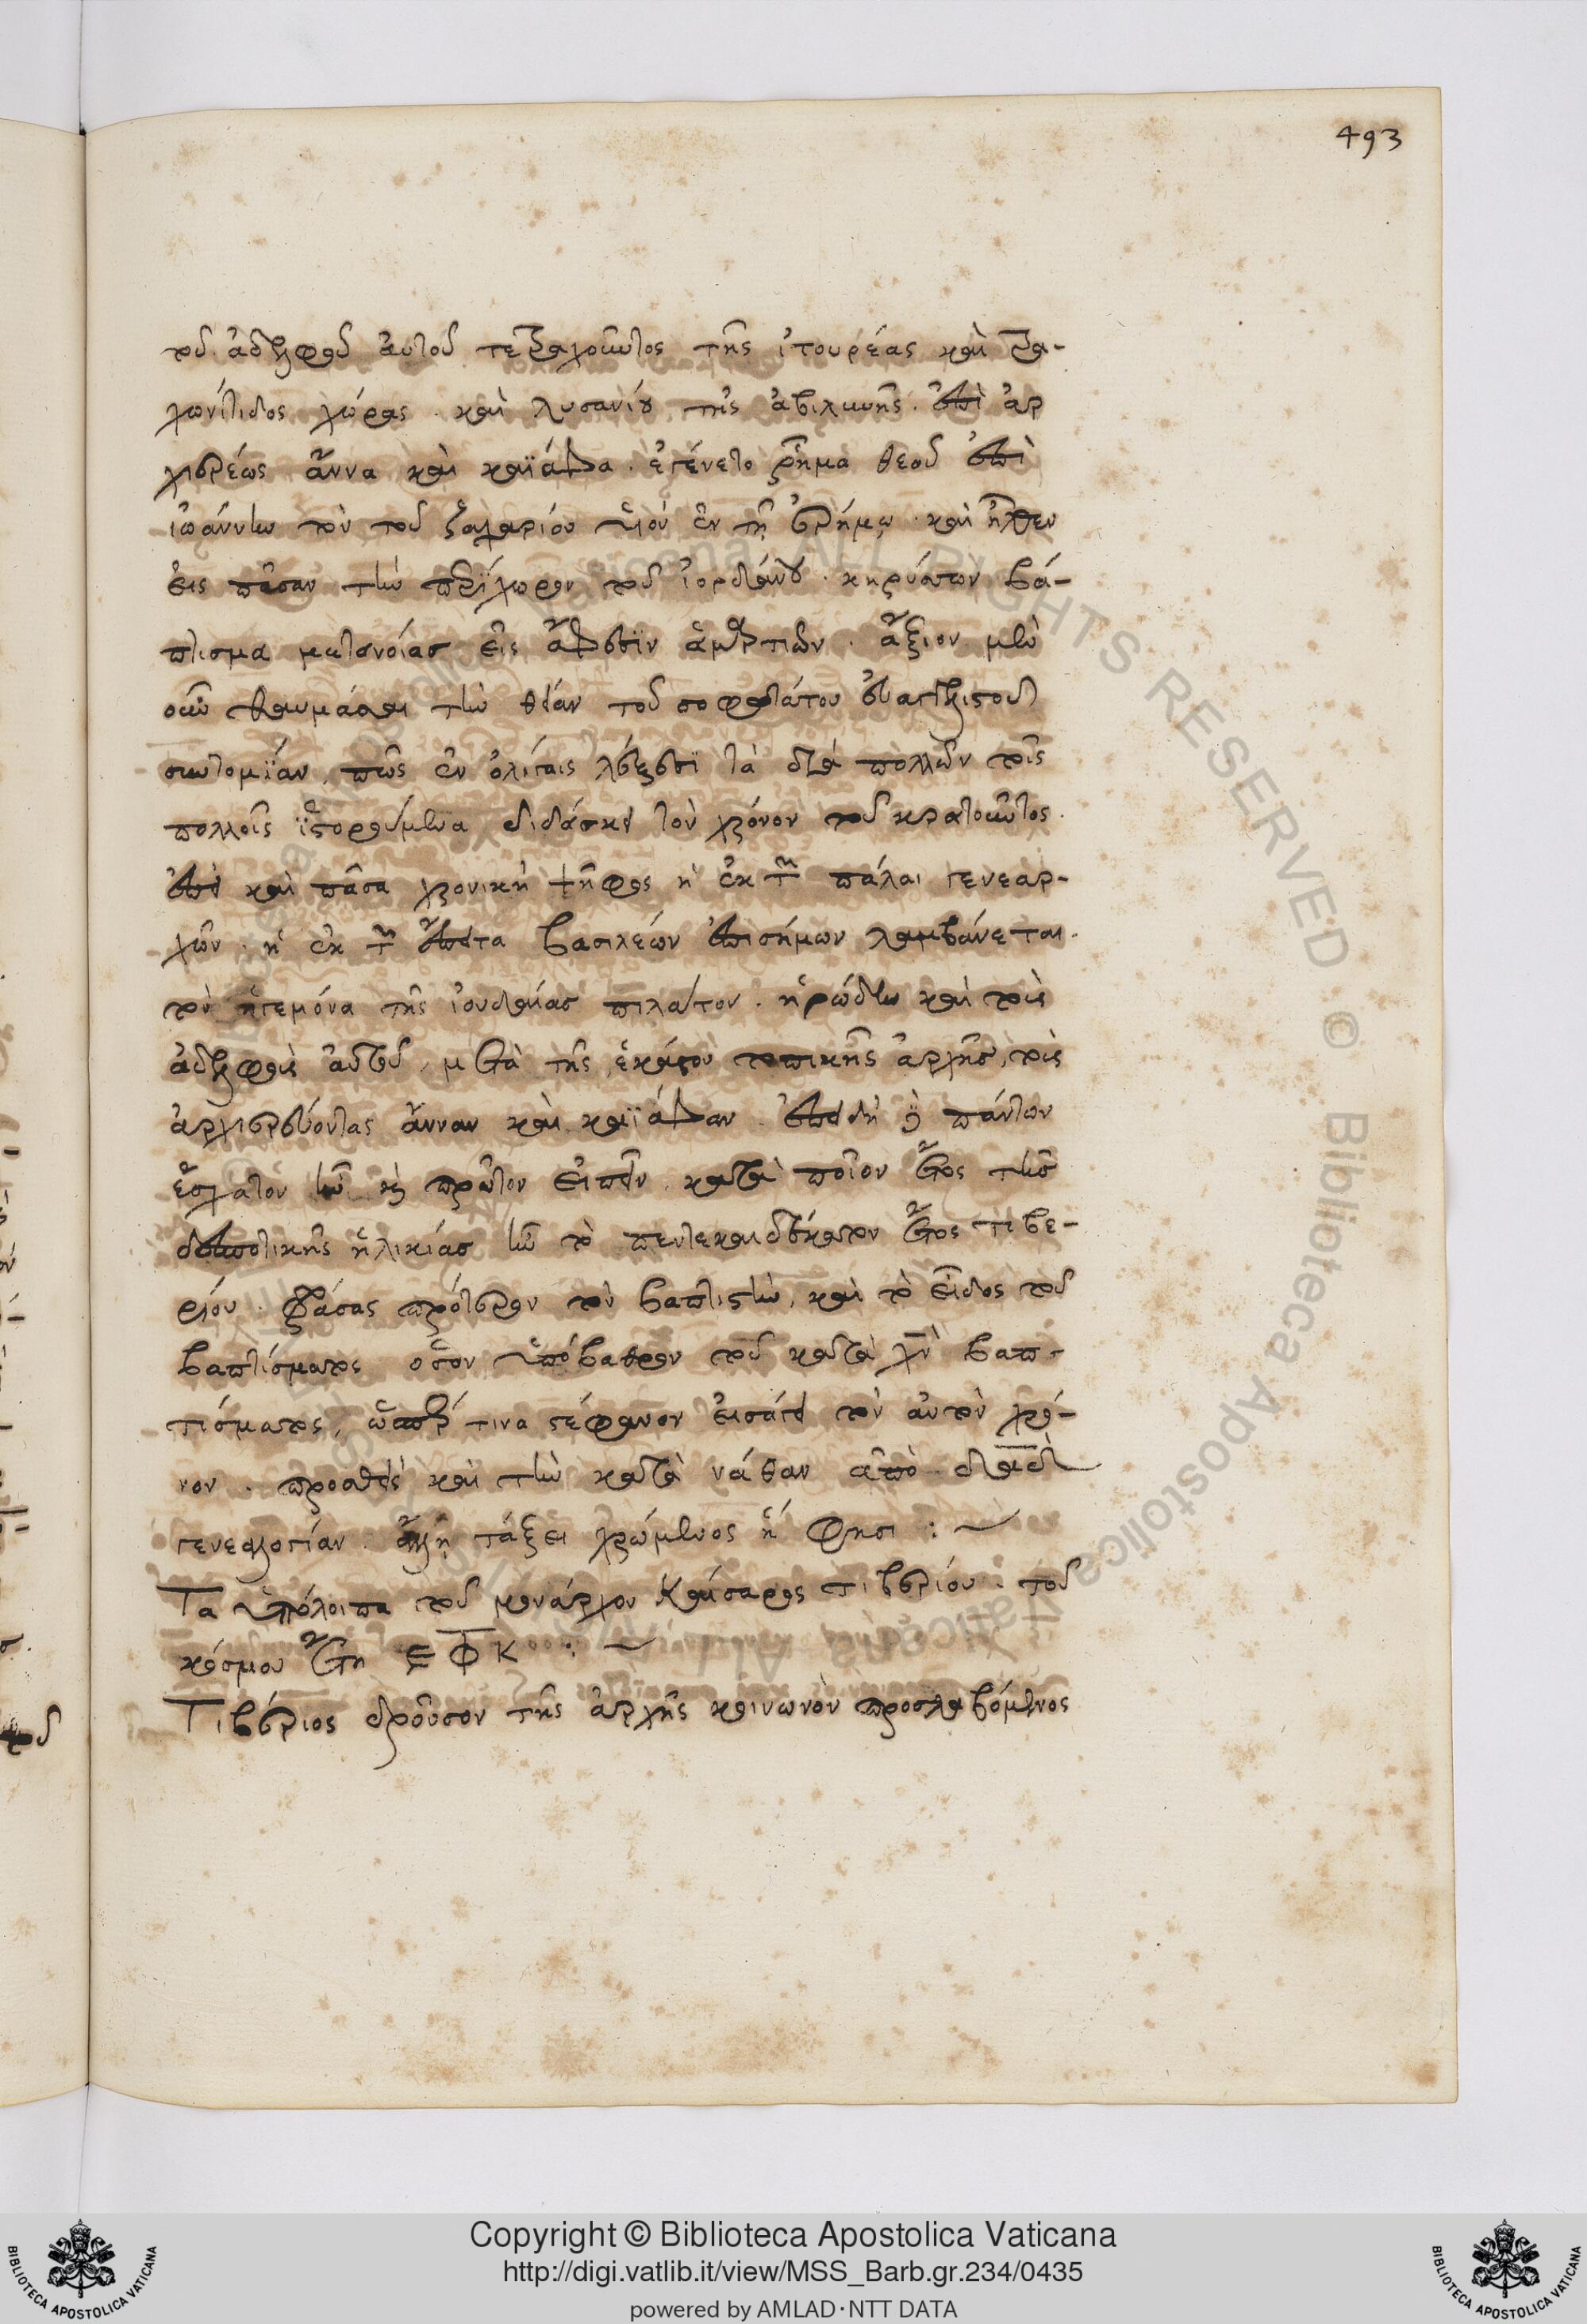 493
τοῦ ἀδελφοῦ αὐτοῦ τετραρχοῦντος τῆς ἰτουρέας καὶ τρα-
χωνίτιδος χώρας . καὶ λυσανίου τῆς ἀβιλινῆς . ἐπὶ ἀρ
χιερέως ἄννα καὶ καϊάφα . ἐγένετο ῥῆμα θεοῦ ἐπὶ
ἰωάννην τὸν τοῦ ζαχαρίου υἱὸν ἐν τῇ ἐρήμω . καὶ ἦλθεν
εἰς πᾶσαν τὴν περίχωρον τοῦ ἰορδάνου . κηρύσσων βά-
πτισμα μετανοίας εἰς ἄφεσιν ἁμαρτιῶν . ἄξιον μὲν
οὖν θαυμάσαι τὴν θείαν τοῦ σοφωτάτου εὐαγγελιστοῦ
συντομίαν , πῶς ἐν ὀλίγαις λέξεσι τὰ διὰ πολλῶν τοῖς
πολλοῖς ἱστορούμενα διδάσκει τὸν χρόνον τοῦ κρατοῦντος .
ἐπεὶ καὶ πᾶσα χρονικὴ ψῆφος ἢ ἐκ τῶν πάλαι γενεαρ-
χῶν . ἢ ἐκ τῶν ἔπειτα βασιλέων ἐπισήμων λαμβάνεται .
τὸν ἡγεμόνα τῆς ἰουδαίας πιλάτον . ἡρώδην καὶ τοὺς
ἀδελφοὺς αὐτοῦ , μετὰ τῆς ἑκάστου τοπικῆς ἀρχῆς , τοὺς
ἀρχιερεύοντας ἄνναν καὶ καϊάφαν . ἐπειδὴ δὲ πάντων
ἔσχατον ἦν καὶ πρῶτον εἰπεῖν . κατὰ ποῖον ἔτος τῆς
δεσποτικῆς ἡλικίας ἦν τὸ πεντεκαιδέκατον ἔτος τιβε-
ρίου . φράσας πρότερον τὸν βαπτιστὴν , καὶ τὸ εἶδος τοῦ
βαπτίσματος οἷον ὑπόβαθρον τοῦ κατὰ χν βαπ-
τίσματος , ὥσπερ τινα στέφανον εἰσάγει τὸν αὐτὸν χρό-
νον . προσθεὶς καὶ τὴν κατὰ νάθαν ἀπὸ δαδ
γενεαλογίαν . ἄλλῃ τάξει χρώμενος ἥ φησι : ~
Τα ὑπόλοιπα τοῦ μονάρχου Καίσαρος τιβερίου . τοῦ
κόσμου ἔτη εφκ : ~
Τιβέριος δροῦσον τῆς ἀρχῆς κοινωνὸν προσλαβόμενος
Copyright © Biblioteca Apostolica Vaticana
http://digi.vatlib.it/view/MSS_Barb.gr.234/0435
powered by AMLAD·NTT DATA